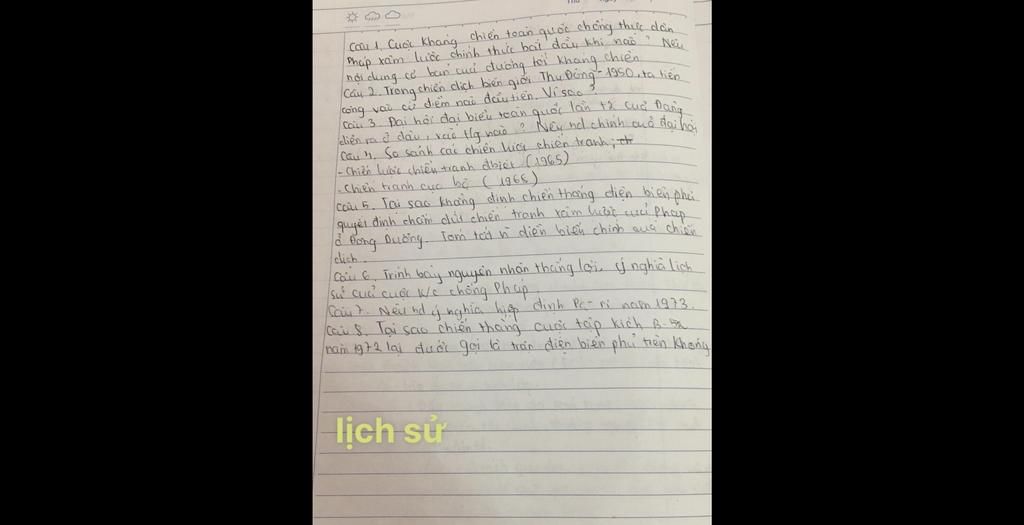 Câu 1. Cuộc kháng chiến toàn quốc chống thực dân
Pháp xâm lược chính thức bắt đầu khi nào? Nêu
nội dung cơ bản của đường lối kháng chiến
Câu 2. Trong chiến dịch biên giới Thu Đông - 1950, ta tiến
công vào cứ điểm nào đầu tiên. Vì sao?
Câu 3. Đại hội đại biểu toàn quốc lần t2 của Đảng
diễn ra ở đâu, vào t/g nào? Nêu nd chính của đại hội
Câu 4. So sánh các chiến lược chiến tranh;
- Chiến lược chiến tranh đbiệt (1965)
- Chiến tranh cục bộ (1968)
Câu 5. Tại sao khẳng định chiến thắng điện biên phủ
quyết định chấm dứt chiến tranh xâm lược của Pháp
ở Đông Dương. Tóm tắt n diễn biến chính của chiến
dịch.
Câu 6. Trình bày nguyên nhân thắng lợi, ý nghĩa lịch
sử của cuộc k/c chống Pháp.
Câu 7. Nêu nd ý nghĩa hiệp định Pa-ri năm 1973.
Câu 8. Tại sao chiến thắng cuộc tập kích B-52
năm 1972 lại được gọi là trận điện biên phủ trên không
lịch sử